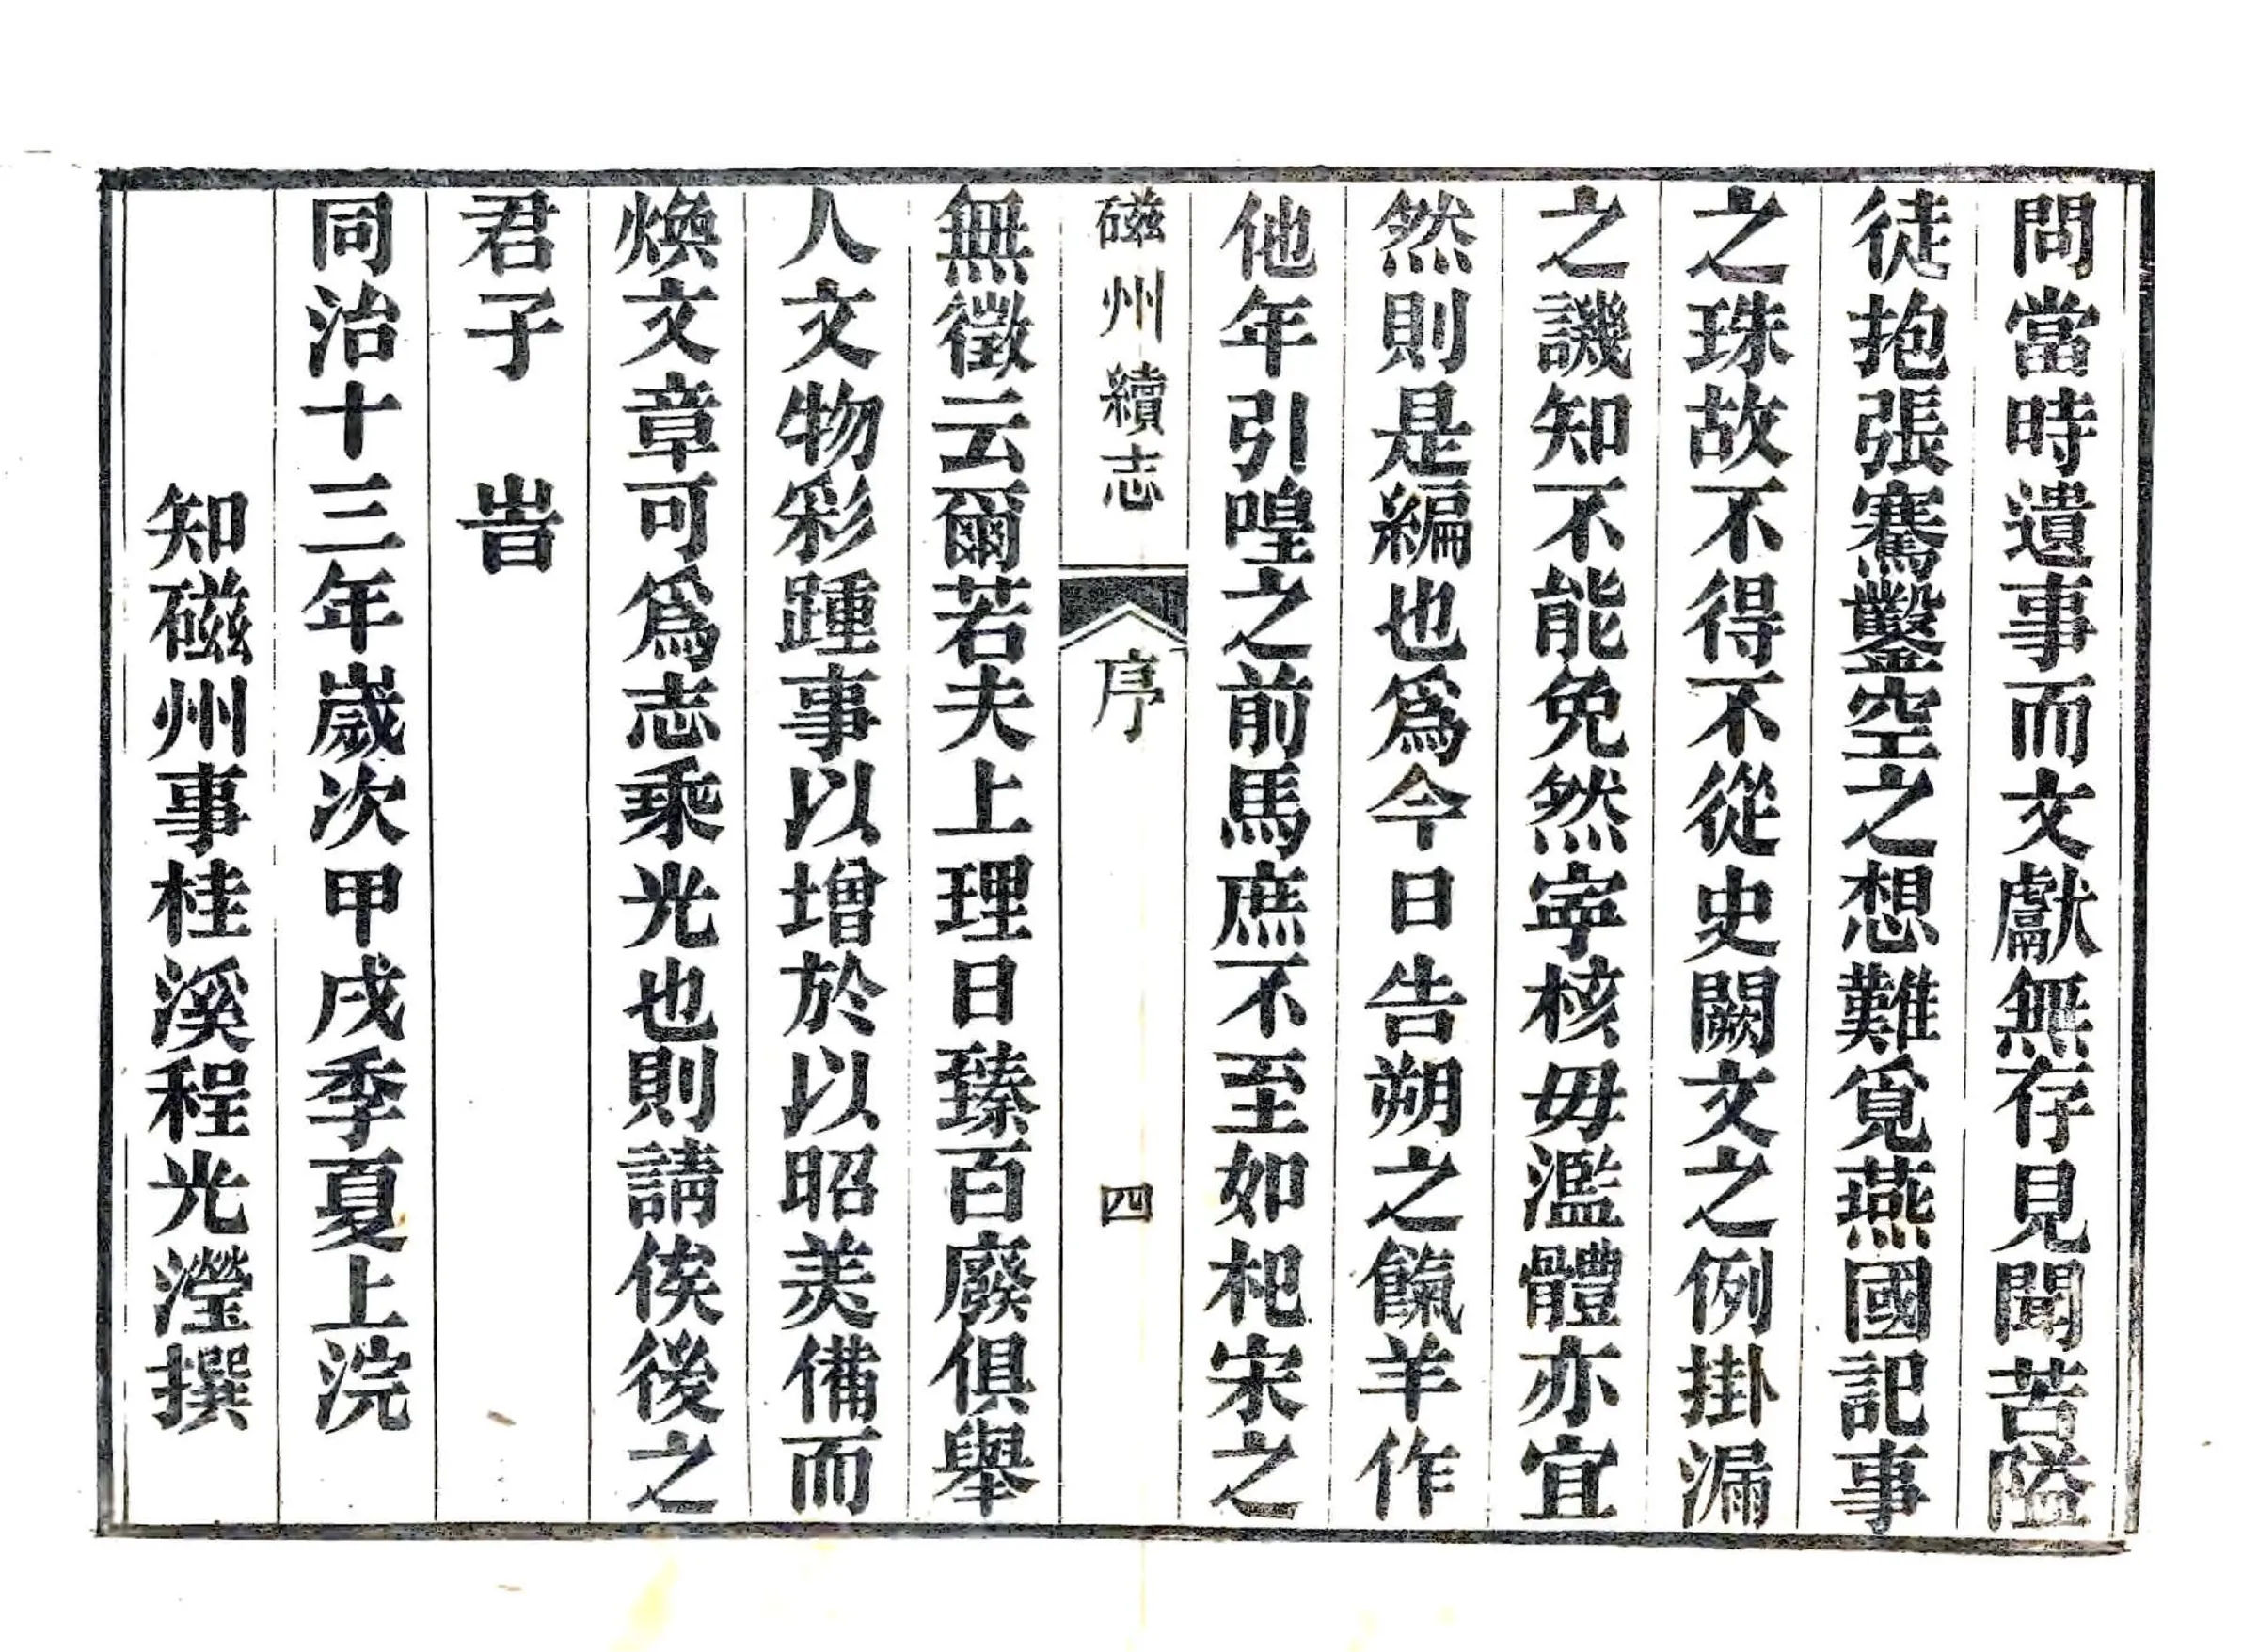 問當時遺事而文獻無存見聞苦隘
徒抱張騫鑿空之想難覓燕國記事
之珠故不得不從史闕文之例掛漏
之譏知不能免然寧核毋濫體亦宜
然則是編也爲今日告朔之餼羊作
他年引喤之前馬庶不至如杞宋之
磁州續志 序 四
無徵云爾若夫上理日臻百廢俱舉
人文物彩踵事以增於以昭美備而
煥文章可爲志乘光也則請俟後之
君子 旹
同治十三年歲次甲戌季夏上浣
知磁州事桂溪程光瀅撰